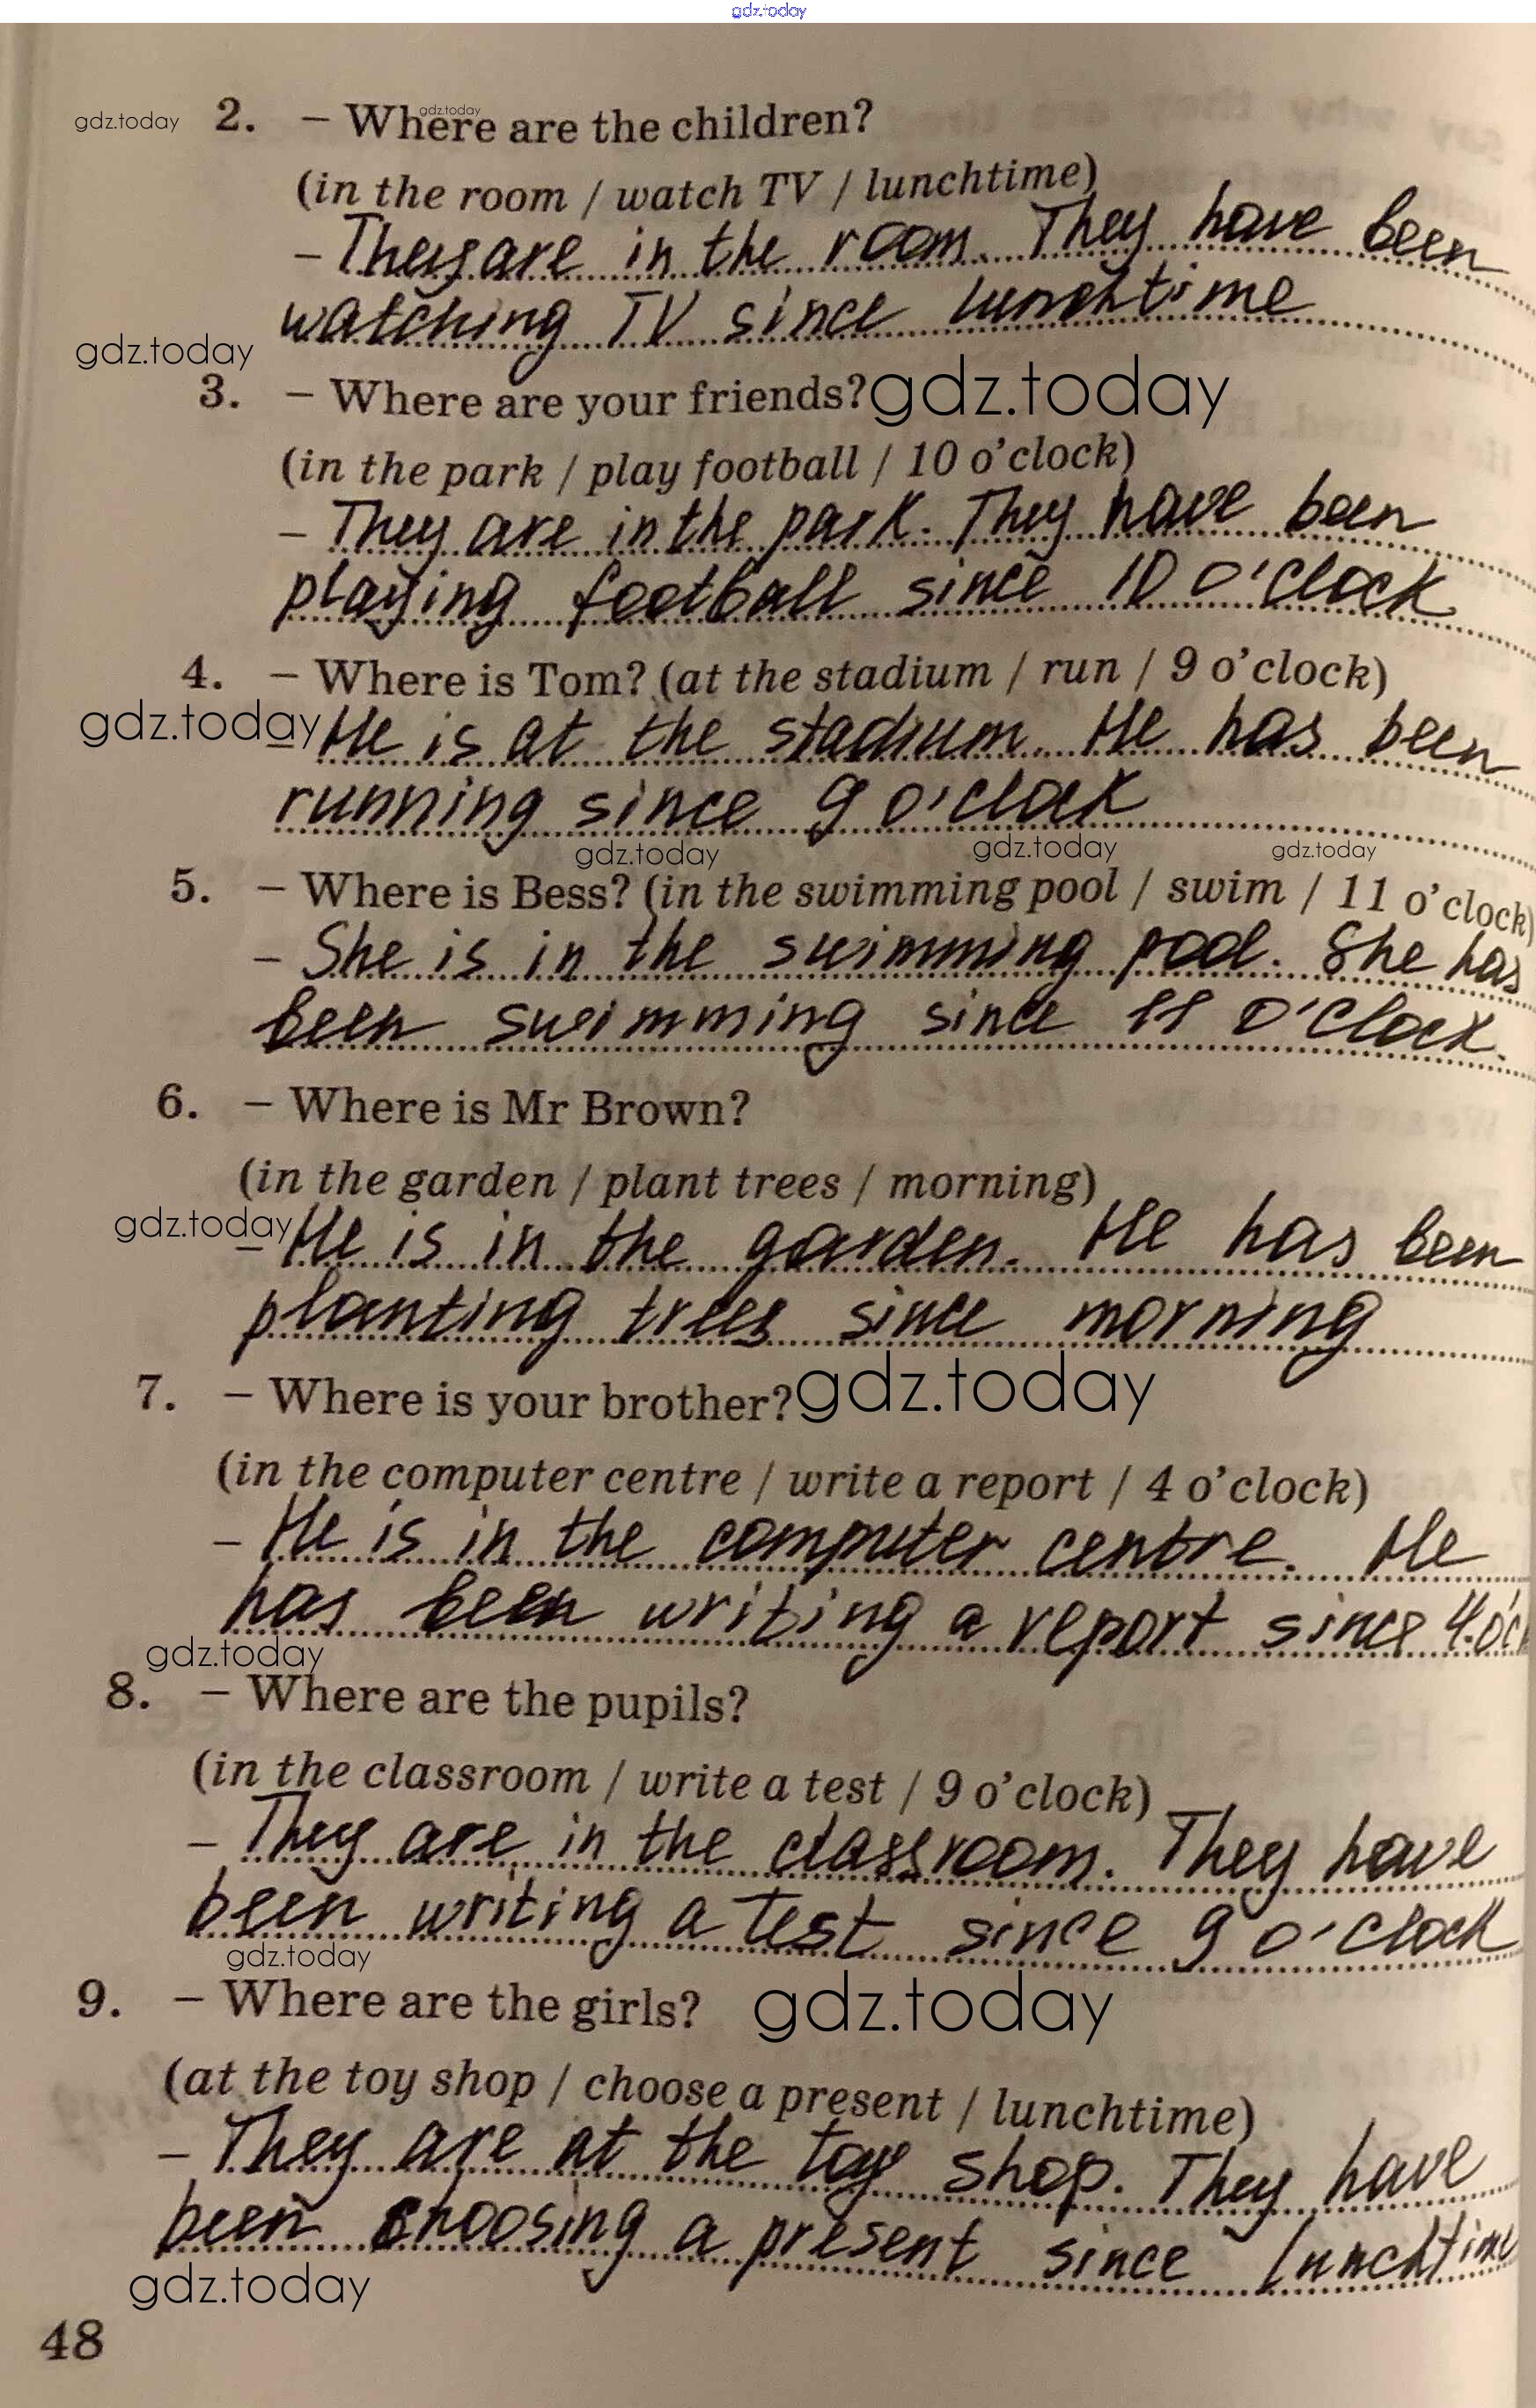 gdz.today
gdz.today
gdz.today
2. – Where are the children?
(in the room / watch TV / lunchtime)
– They are in the room. They have been
watching TV since lunchtime
gdz.today
3. – Where are your friends?
gdz.today
(in the park / play football / 10 o'clock)
– They are in the park. They have been
playing football since 10 o'clock
4. – Where is Tom? (at the stadium / run / 9 o'clock)
gdz.today
– He is at the stadium. He has been
running since 9 o'clock
gdz.today
gdz.today
gdz.today
5. – Where is Bess? (in the swimming pool / swim / 11 o'clock)
– She is in the swimming pool. She has
been swimming since 11 o'clock.
6. – Where is Mr Brown?
(in the garden / plant trees / morning)
gdz.today
– He is in the garden. He has been
planting trees since morning
7. – Where is your brother?
gdz.today
(in the computer centre / write a report / 4 o'clock)
– He is in the computer centre. He
has been writing a report since 4 o'cl
gdz.today
8. – Where are the pupils?
(in the classroom / write a test / 9 o'clock)
– They are in the classroom. They have
been writing a test since 9 o'clock
gdz.today
9. – Where are the girls?
gdz.today
(at the toy shop / choose a present / lunchtime)
– They are at the toy shop. They have
been choosing a present since lunchtime
gdz.today
48